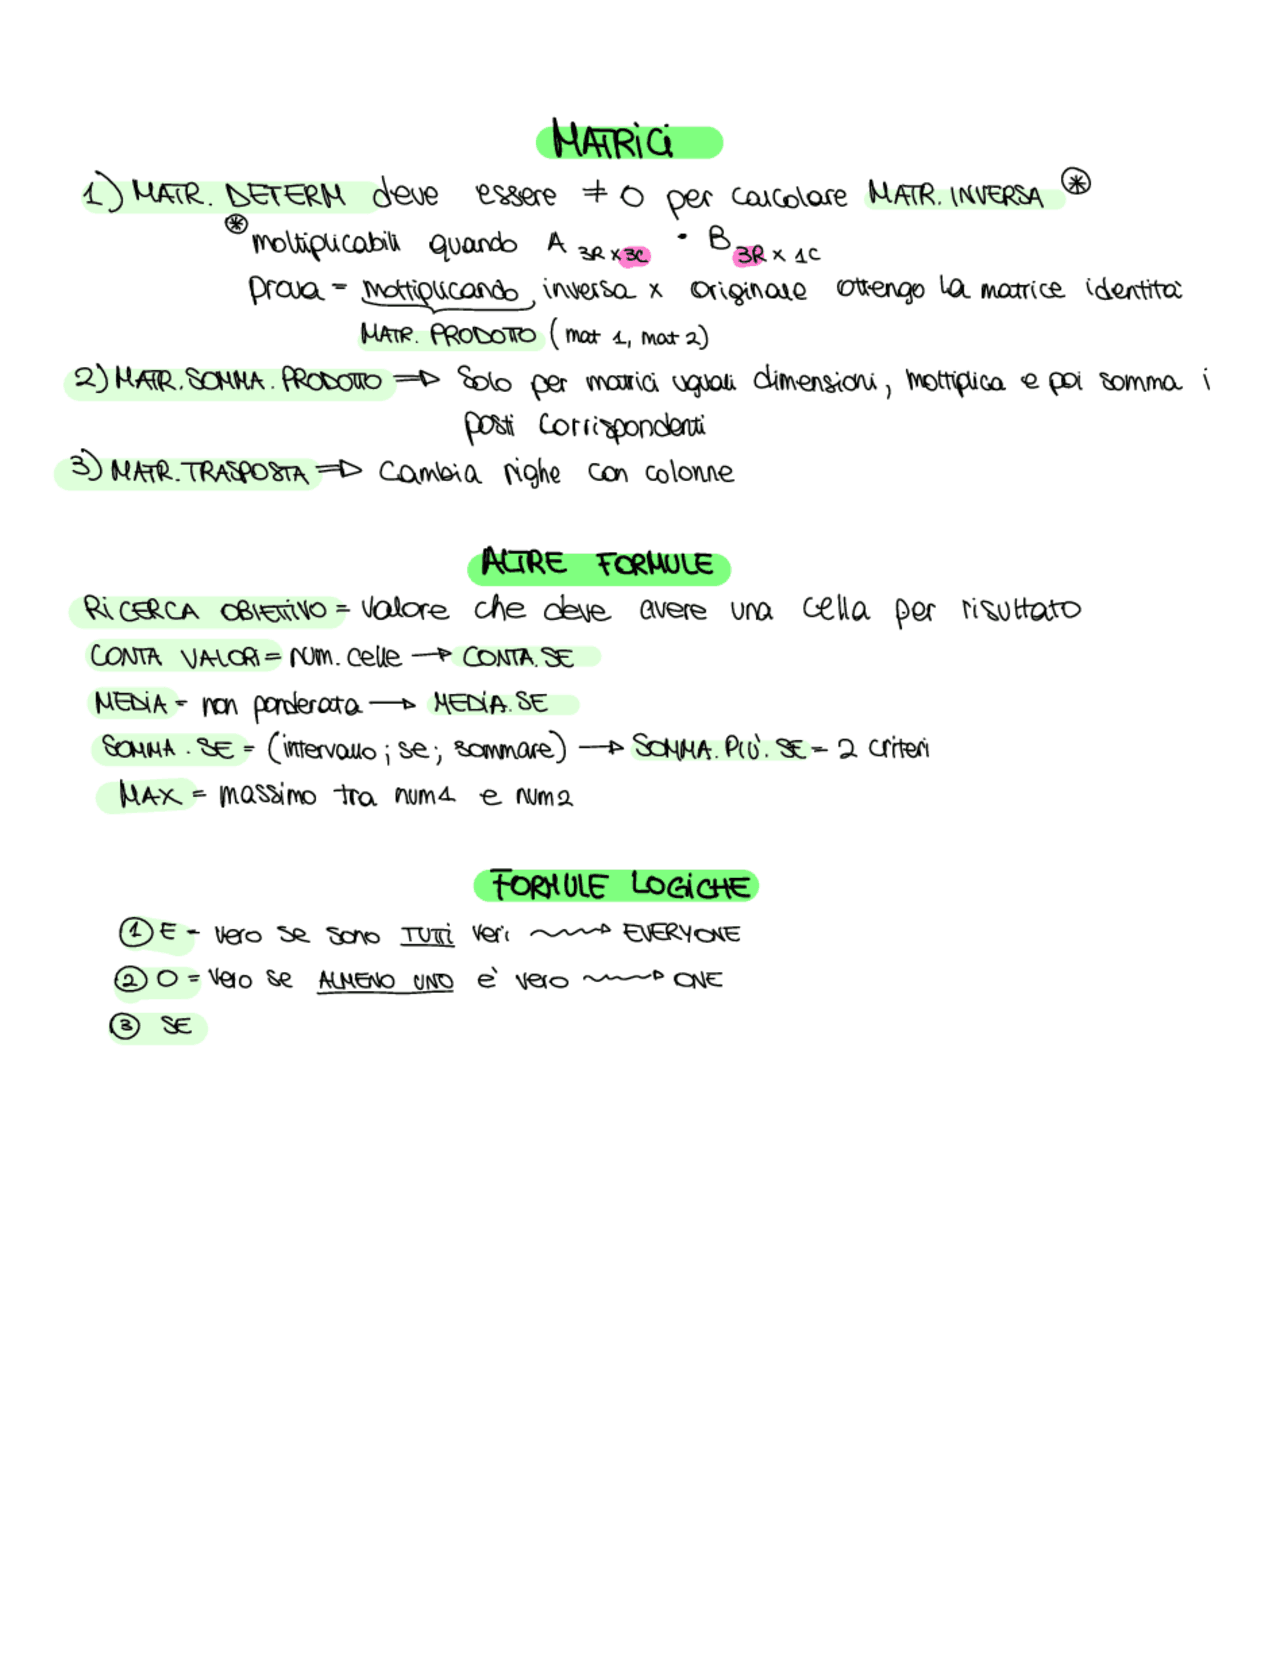 MATRICI
1) MATR. DETERM deve essere ≠ 0 per calcolare MATR. INVERSA ⊛
⊛ moltiplicabili quando A 3R x 3C · B 3R x 1C
prova = moltiplicando inversa x originale ottengo la matrice identità
MATR. PRODOTTO (mat 1, mat 2)
2) MATR. SOMMA. PRODOTTO ⇒ Solo per matrici uguali dimensioni, moltiplica e poi somma i
posti corrispondenti
3) MATR. TRASPOSTA ⇒ Cambia righe con colonne
ALTRE FORMULE
RICERCA OBIETTIVO = Valore che deve avere una cella per risultato
CONTA VALORI = num. celle → CONTA.SE
MEDIA = non ponderata → MEDIA.SE
SOMMA.SE = (intervallo; se; sommare) → SOMMA.PIÙ.SE = 2 criteri
MAX = massimo tra num1 e num2
FORMULE LOGICHE
① E = vero se sono TUTTI veri → EVERYONE
② O = Vero se ALMENO UNO è vero → ONE
③ SE